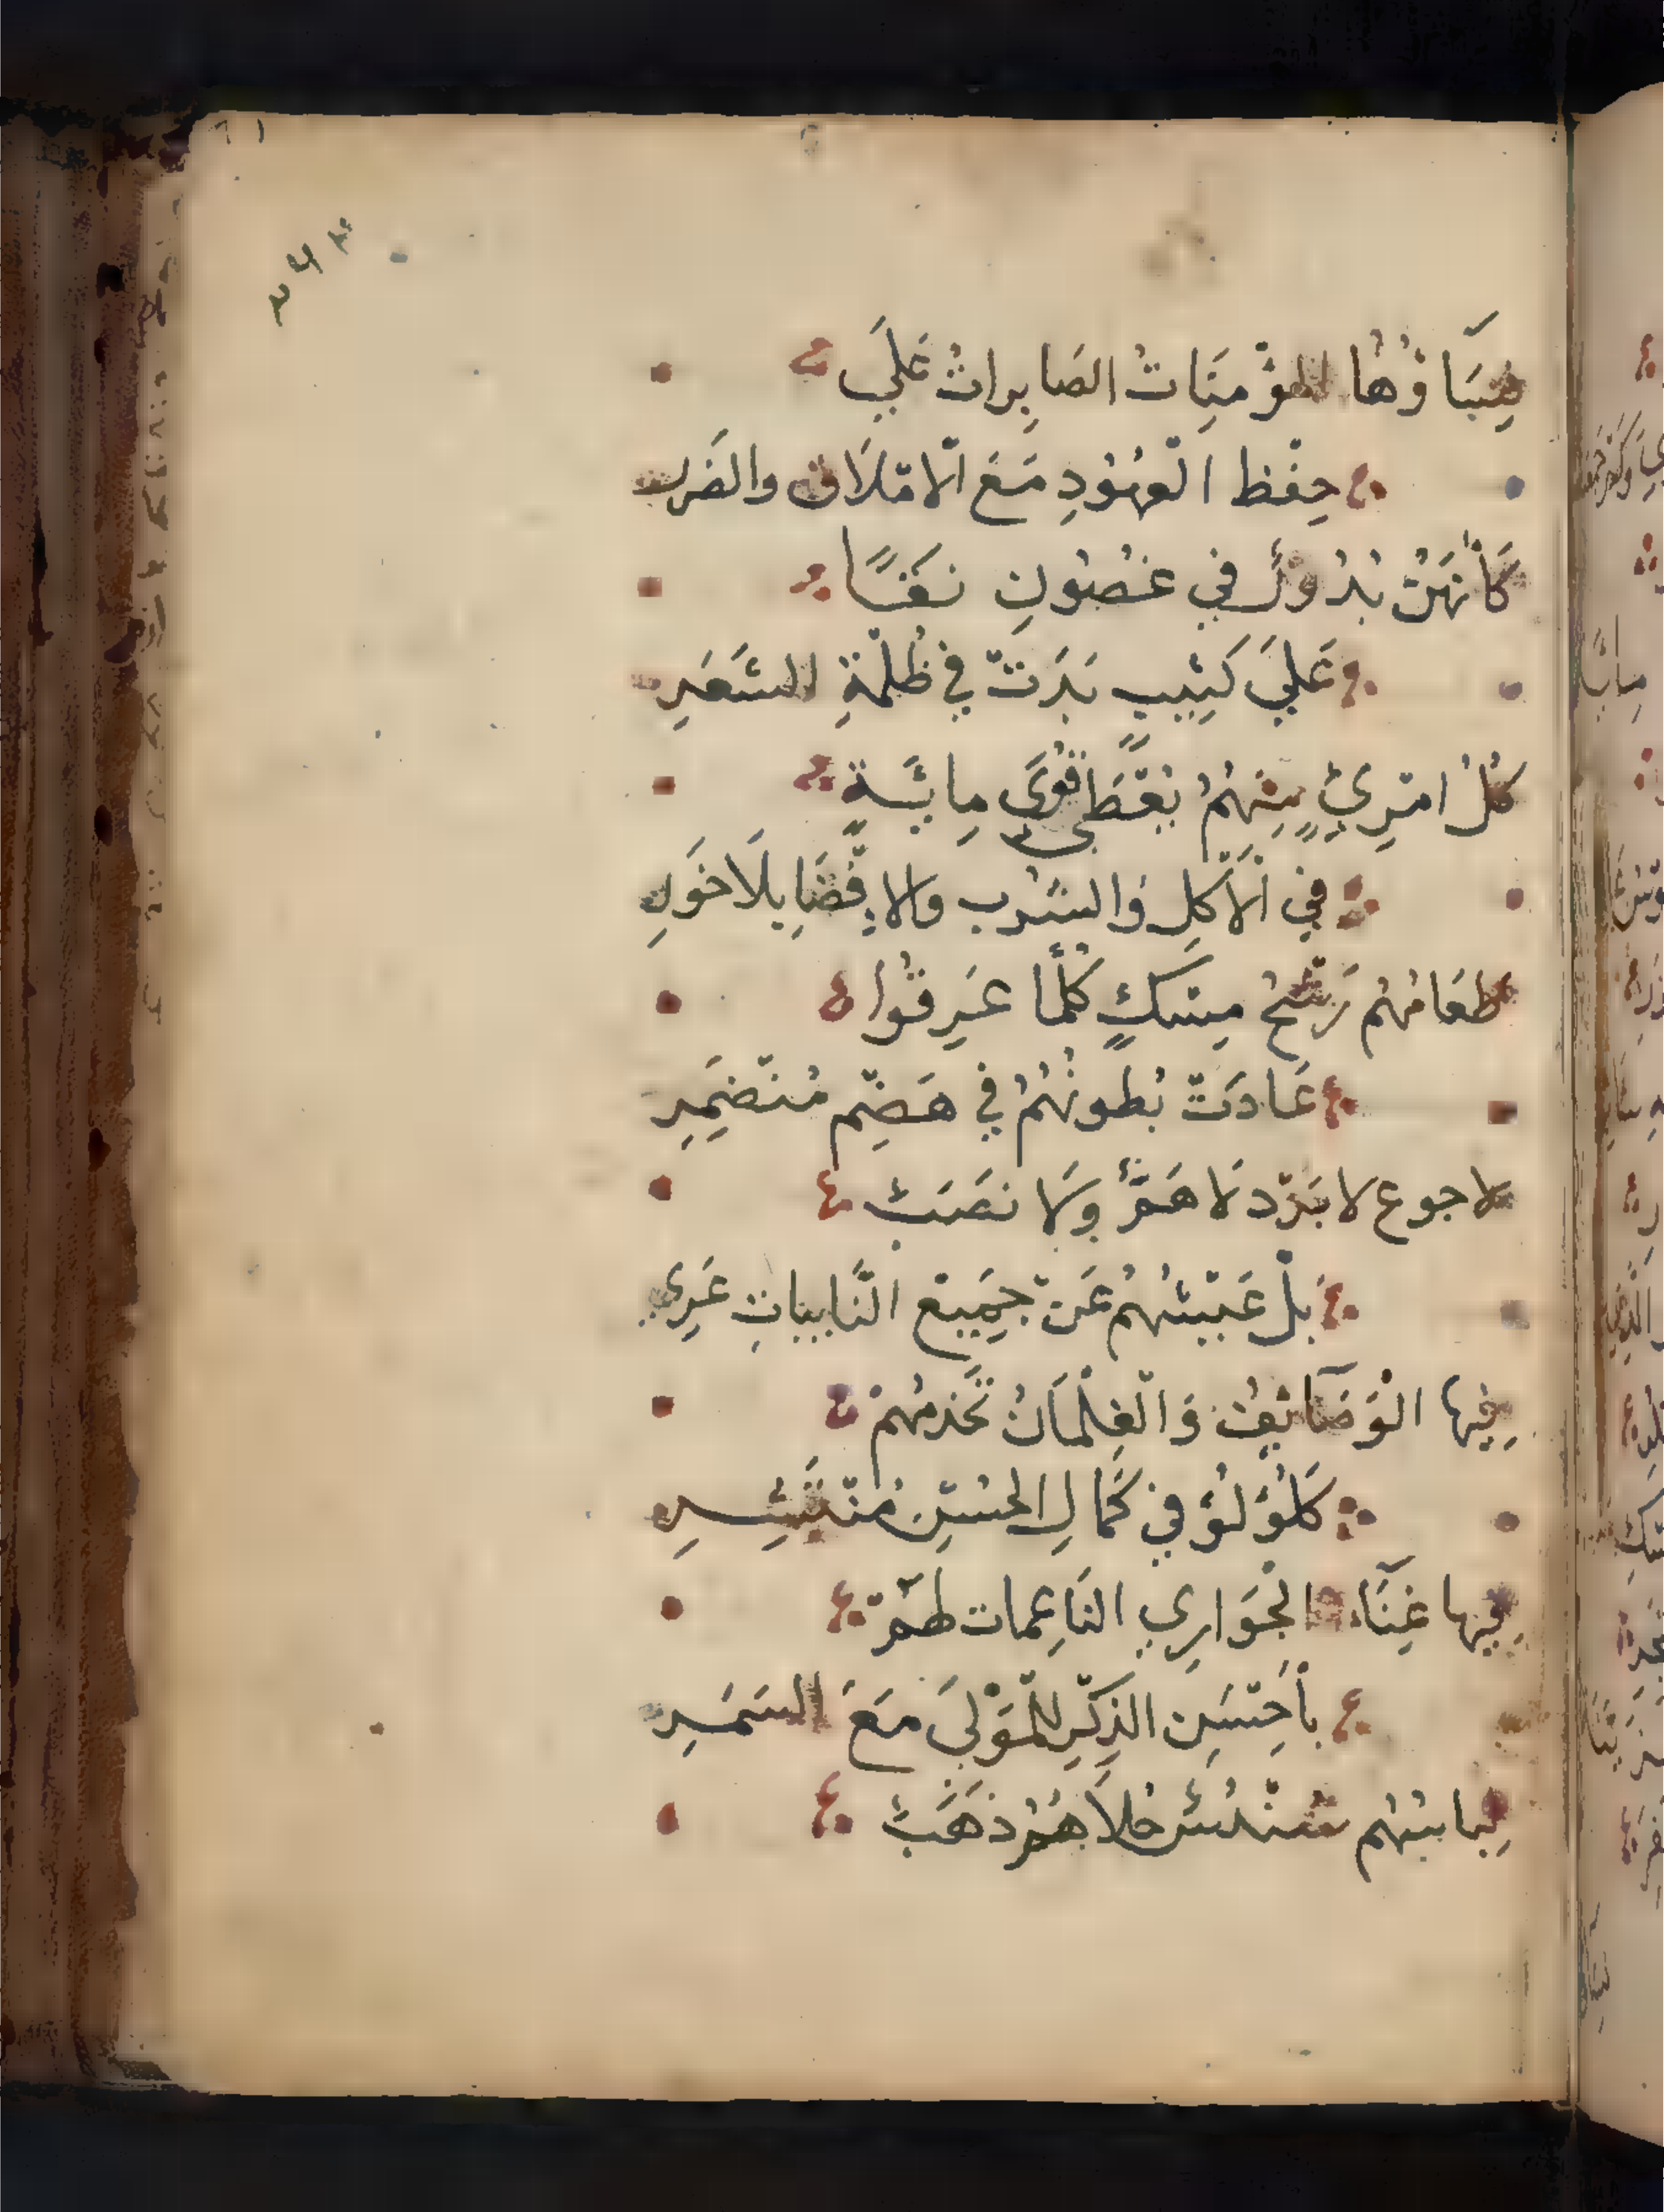 نِسَآؤُها المؤْمِنَاتُ الصَابِراتُ عَلَي
حِفْظ الْعُهُوْدِ مَعَ الْامْلَاق والضَرر
كَأَنَهُنْ بُدُوْرٌ في غُصُونِ نَقًا
عَلَيَ كَثِيْبٍ بَدَتْ فِي ظُلْمَةِ الشَعَرِ
كُلُ امْرِيءٍ مِنْهُمُ يُعْطَي قُوَي مِايَةٍ
فِي الْاَكْلِ وَالشُرْبِ والإِفْضَا بِلَا خَوَرِ
طَعَامُهُم رَشْحُ مِسْكٍ كُلَّمَا عَرِقُوا
عَادَتْ بُطونُهُمُ فِي هَضْمِ مُنْضَمِرِ
لا جوع لا بَرْد لَا هَمٌّ وَلَا نَصَبٌ
بلْ عَيْشُهُمُ عَنْ جَمِيْع النَّايِبَاتِ عَرِي
فِيها الْوَصَآئِفُ وَالْغِلْمَانُ تَخْدمُهُمْ
كَلُؤْلُؤٍ فِي كَمَالِ الحُسْنِ مُنْتَثِرِ
فِيها غِنَآء الْجَوَارِي النَاعِمات لهم
بأَحْسَنِ الذِكْرِ للْمَوْلَي مَعَ السَمَرِ
لِبَاسُهُم سُنْدُسٌ حُلَاهُمُ ذَهَبٌ